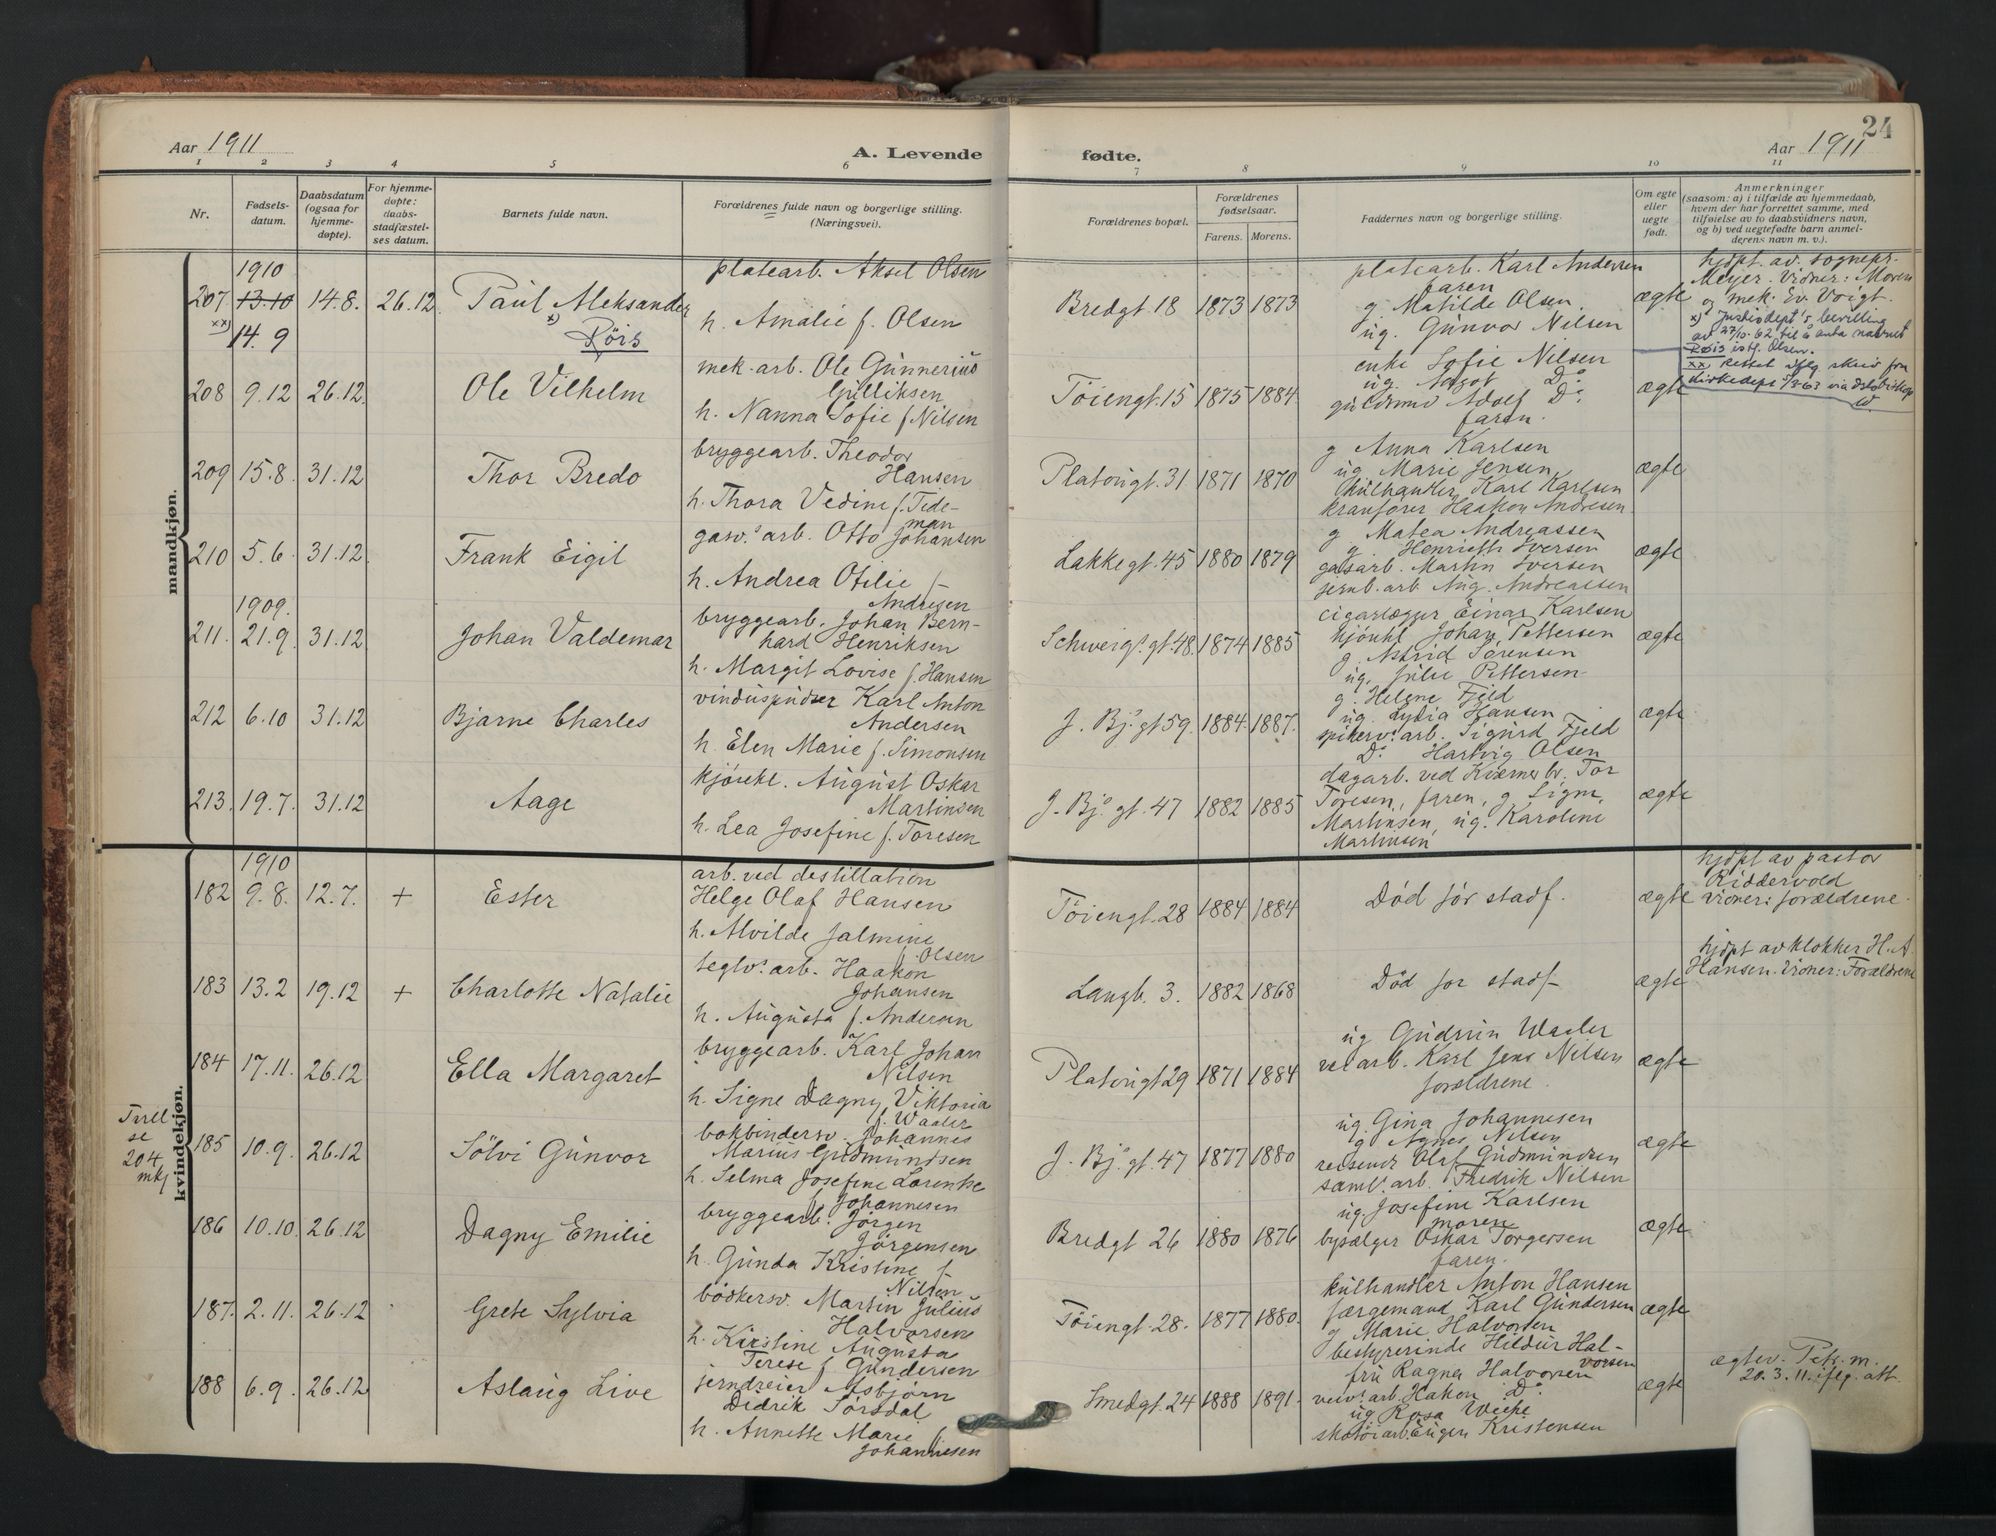 24
Aar 1911
A. Levende
fødte.
Aar 1911
1 2 3 4 5 6 7 8 9 10 11
Nr.
Fødsels-
datum.
Daabsdatum
(ogsaa for
hjemme-
døpte).
For hjemme-
døpte:
daabs-
stadfæstel-
ses datum.
Barnets fulde navn.
Forældrenes fulde navn og borgerlige stilling.
(Næringsvei).
Forældrenes bopæl.
Forældrenes
fødselsaar.
Farens. Morens.
Faddernes navn og borgerlige stilling.
Om egte
eller
uegte
født.
Anmerkninger
(saasom: a) i tilfælde av hjemmedaab,
hvem der har forrettet samme, med
tilføielse av to daabsvidners navn,
og b) ved uegtefødte barn anmel-
derens navn m. v.).
mandkjøn.
1910
207. 13.10 14.8. 26.12. Paul Aleksander
xx) 14.9
x) Røis
platearb. Aksel Olsen
h. Amalie f. Olsen
Bredgt 18 1873 1873
platearb. Karl Andersen
faren
g. Matilde Olsen
ug. Gunvor Nilsen
ægte
hjdpt. av sognepr.
Meyer. Vidner: Moren
og mek. Ev. Voigt.
x) Justisdept's bevilling
av 27/10.62 til å anta navnet
Røis istf. Olsen.
xx) Rettet iflg skriv fra
208 9.12 26.12. Ole Vilhelm
mek. arb. Ole Gunnerius
Gulliksen
h. Nanna Sofie f. Nilsen
Töiengt. 15 1875 1884.
enke Sofie Nilsen
ug. Aagot Do
guldsmed Adolf Do
faren.
ægte
209 15.8. 31.12 Thor Bredo
bryggearb. Theodor
Hansen
h. Thora Vedine f. Tede-
man
Platougt. 31 1871 1870
g Anna Karlsen
ug. Marie Jensen
kulhandler Karl Karlsen
kranfører Haakon Andresen
ægte
210 5.6. 31.12. Frank Eigil
gasv. arb. Otto Johansen
h. Andrea Otilie f.
Andresen
Lakkegt. 45 1880 1879
g. Matea Andreassen
g. Henriette Iversen
gasarb. Martin Iversen
jernb. arb. Aug. Andreassen
ægte
1909.
211. 21.9. 31.12 Johan Valdemar
bryggearb. Johan Bern-
hard Henriksen
h. Margit Lovise f. Hansen
Schweigs. gt. 48. 1874 1885
cigarlægger Einar Karlsen
kjørekl Johan Pettersen
g. Astrid Sørensen
ug. Julie Pettersen
ægte
212 6.10 31.12 Bjarne Charles
vinduspudser Karl Anton
Andersen
h. Elen Marie f. Simonsen
J. Bj.s gt 59. 1884. 1887.
g. Helene Fjeld
ug. Lydia Hansen
spikerv. arb. Sigurd Fjeld
Do Hartvig Olsen
ægte
213. 19.7. 31.12 Aage
kjørekl. August Oskar
Martinsen
h. Lea Josefine f. Toresen
J. Bj.s gt. 47 1882 1885
dagarb. ved Kværnerbr. Tor
Toresen, faren, g. Signe
Martinsen, ug. Karoline
Martinsen
ægte
kvindekjøn.
1910
182 9.8. 12.7. + Ester
arb. ved destillation
Helge Olaf Hansen
h. Alvilde Jalmine
f. Olsen
Töiengt. 28 1884 1884
Død før stadf.
ægte
hjdpt av pastor
Riddervold
vidner: forældrene.
183 13.2 19.12 + Charlotte Natalie
teglv. arb. Haakon
Johansen
h. Augusta f. Andersen
Langb. 3. 1882 1868
Død før stadf
ægte
hjdpt av klokker H. A
Hansen. Vidner: Forældrene
184 17.11. 26.12 Ella Margaret
bryggearb. Karl Johan
Nilsen
h. Signe Dagny Viktoria
f. Waaler
Platougt 29 1871 1884
ug Gudrun Waaler
arb. Karl Jens Nilsen
forældrene.
ægte
Tvill
se
204
mkj
185 10.9. 26.12 Sölvi Gunvor
bokbindersv. Johannes
Marius Gudmundsen
h. Selma Josefine Lorentse
f. Johannesen
J. Bj.s gt. 47 1877 1880
ug. Gina Johannesen
g Agnes Nilsen
reisende Olaf Gudmundsen
arb. Fredrik Nilsen
ægte
186 10.10. 26.12 Dagny Emilie
bryggearb. Jörgen
Jörgensen
h. Gunda Kristine f
Nilsen
Bredgt 26 1880 1876
ug. Josefine Karlsen
moren
bysælger Oskar Torgersen
faren.
ægte
187. 2.11. 26.12 Grete Sylvia
bödkersv. Martin Julius
Halvorsen
h. Kirstine Augusta
Terese f Gundersen
Töiengt. 28. 1877 1880.
kulhandler Anton Hansen
færgemand Karl Gundersen
g Marie Halvorsen
bestyrerinde Hildur Hal-
vorsen
ægte
188 6.9. 26.12 Aslaug Live
jerndreier Asbjörn
Didrik Sörsdal
h. Annette Marie f.
Johannesen
Smedgt. 24 1888 1891.
fru Ragna Halvorsen
veiv. arb. Hakon Do
ug Rosa
skotöiarb. Eugen Kristensen
ægte
ægtev. m.
20.3.11. iflg. att.